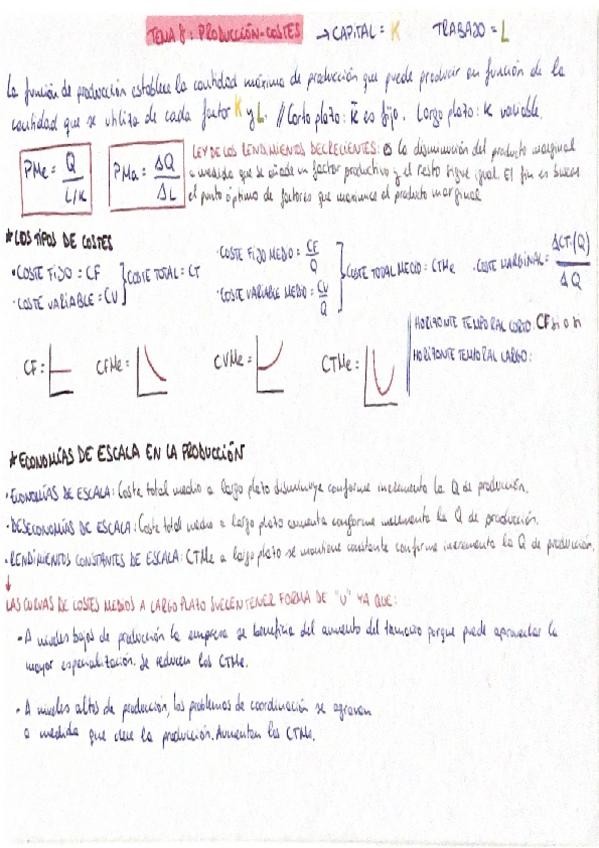 TEMA 8: PRODUCCIÓN-COSTES → CAPITAL = K TRABAJO = L
La función de producción establece la cantidad máxima de producción que puede producir en función de la
cantidad que se utiliza de cada factor K y L. // Corto plazo: K̄ es fijo. Largo plazo: K variable.
PMe = Q / L/K
PMa = ΔQ / ΔL
LEY DE LOS RENDIMIENTOS DECRECIENTES: la disminución del producto marginal
a medida que se añade un factor productivo y el resto sigue igual. El fin es buscar
el punto óptimo de factores que maximice el producto marginal
* LOS TIPOS DE COSTES
• COSTE FIJO = CF
• COSTE VARIABLE = CV
} COSTE TOTAL = CT
• COSTE FIJO MEDIO = CF / Q
• COSTE VARIABLE MEDIO = CV / Q
} COSTE TOTAL MEDIO = CTMe
• COSTE MARGINAL = ΔCT(Q) / ΔQ
HORIZONTE TEMPORAL CORTO: CF
HORIZONTE TEMPORAL LARGO:
CF: CFMe: CVMe: CTMe:
* ECONOMÍAS DE ESCALA EN LA PRODUCCIÓN
• ECONOMÍAS DE ESCALA: Coste total medio a largo plazo disminuye conforme incrementa la Q de producción.
• DESECONOMÍAS DE ESCALA: Coste total medio a largo plazo aumenta conforme incrementa la Q de producción.
• RENDIMIENTOS CONSTANTES DE ESCALA: CTMe a largo plazo se mantiene constante conforme incrementa la Q de producción.
↓
LAS CURVAS DE COSTES MEDIOS A LARGO PLAZO SUELEN TENER FORMA DE "U" YA QUE:
• A niveles bajos de producción la empresa se beneficia del aumento del tamaño porque puede aprovechar la
mayor especialización. Se reducen los CTMe.
• A niveles altos de producción, los problemas de coordinación se agravan
a medida que crece la producción. Aumentan los CTMe.